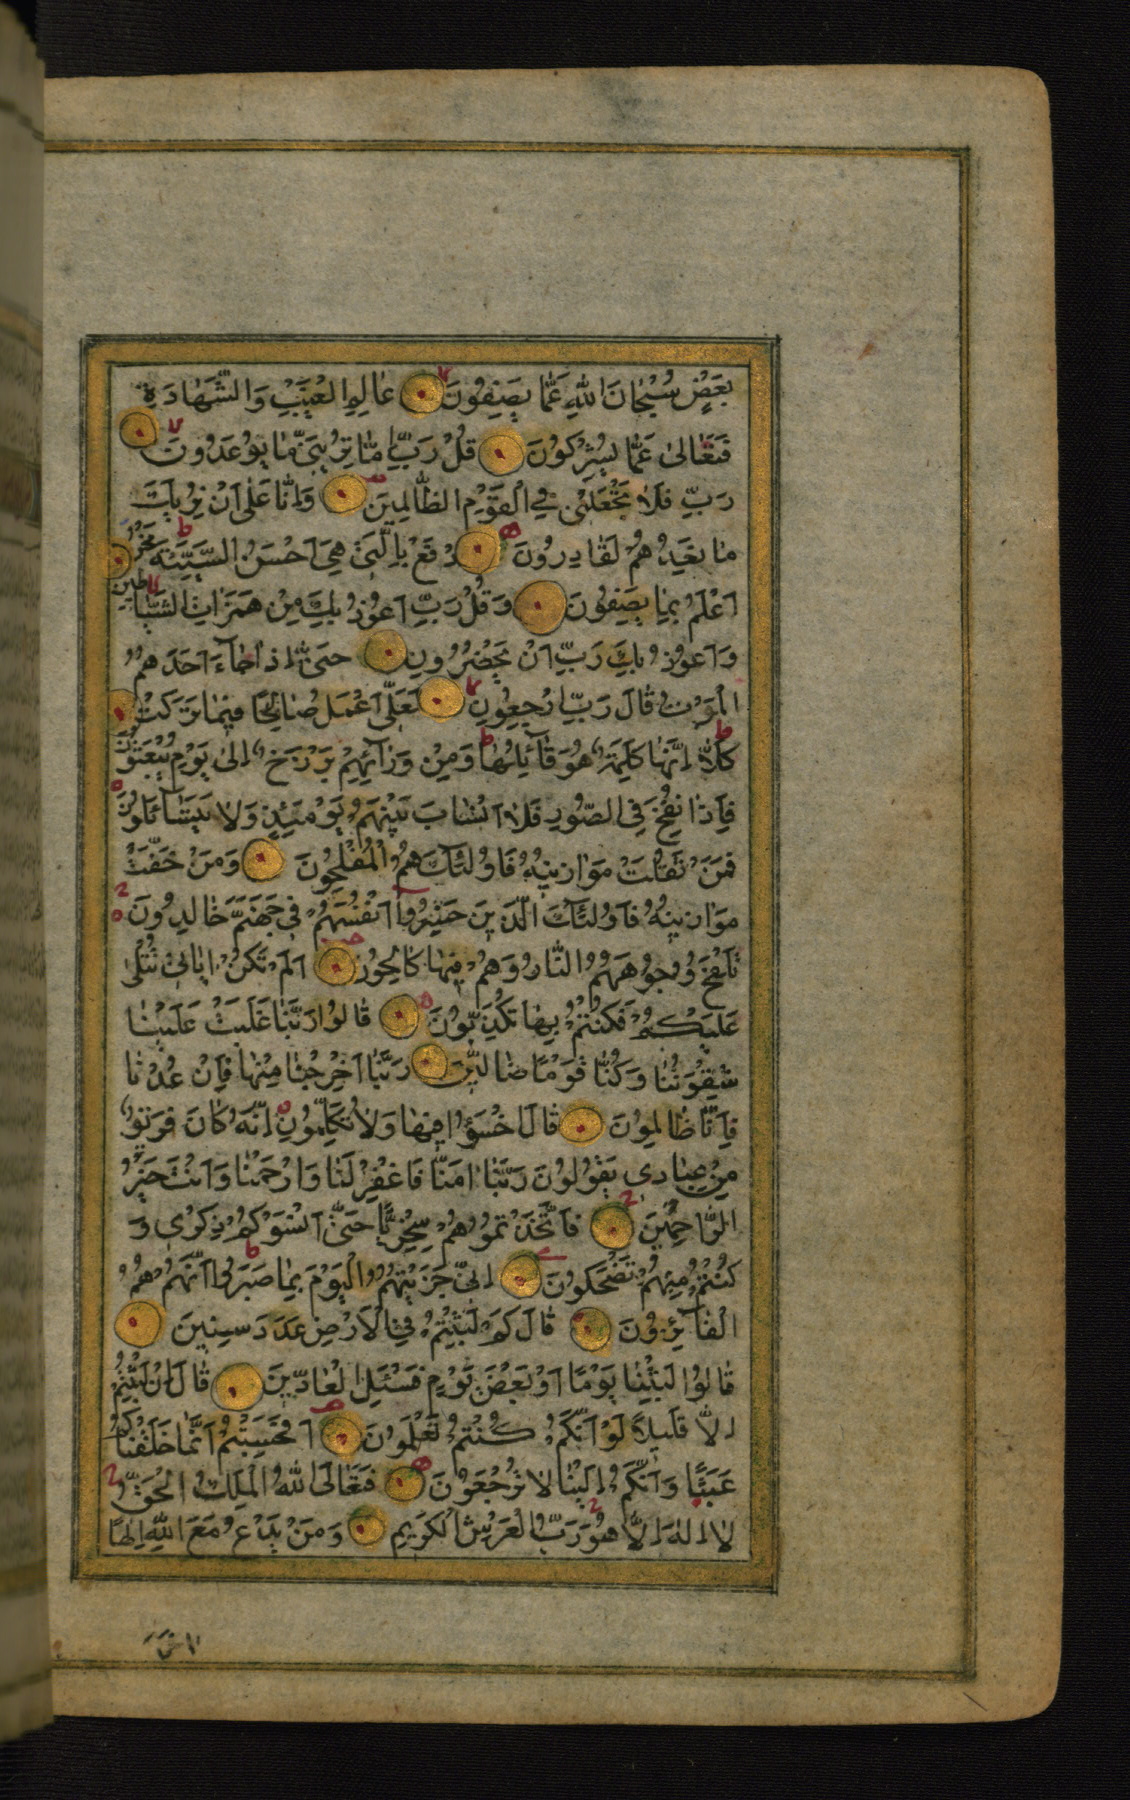 بَعْضٍ سُبْحَانَ اللّٰهِ عَمَّا يَصِفُونَ عَالِمِ الْغَيْبِ وَالشَّهَادَةِ
فَتَعَالىٰ عَمَّا يُشْرِكُونَ قُلْ رَبِّ اِمَّا تُرِيَنِّى مَا يُوعَدُونَ
رَبِّ فَلَا تَجْعَلْنِى فِي الْقَوْمِ الظَّالِمِينَ وَاِنَّا عَلىٰ اَنْ نُرِيَكَ
مَا نَعِدُهُمْ لَقَادِرُونَ اِدْفَعْ بِالَّتِى هِىَ اَحْسَنُ السَّيِّئَةَ نَحْنُ
اَعْلَمُ بِمَا يَصِفُونَ وَقُلْ رَبِّ اَعُوذُ بِكَ مِنْ هَمَزَاتِ الشَّيَاطِينِ
وَاَعُوذُ بِكَ رَبِّ اَنْ يَحْضُرُونِ حَتىّٰ اِذَا جَاءَ اَحَدَهُمُ
الْمَوْتُ قَالَ رَبِّ ارْجِعُونِ لَعَلّى اَعْمَلُ صَالِحًا فِيمَا تَرَكْتُ
كَلَّا اِنَّهَا كَلِمَةٌ هُوَ قَائِلُهَا وَمِنْ وَرَائِهِمْ بَرْزَخٌ اِلىٰ يَوْمِ يُبْعَثُونَ
فَاِذَا نُفِخَ فِى الصُّورِ فَلَا اَنْسَابَ بَيْنَهُمْ يَوْمَئِذٍ وَلَا يَتَسَائَلُونَ
فَمَنْ ثَقُلَتْ مَوَازِينُهُ فَاُولٰئِكَ هُمُ الْمُفْلِحُونَ وَمَنْ خَفَّتْ
مَوَازِينُهُ فَاُولٰئِكَ الَّذِينَ خَسِرُوا اَنْفُسَهُمْ فِى جَهَنَّمَ خَالِدُونَ
تَلْفَحُ وُجُوهَهُمُ النَّارُ وَهُمْ فِيهَا كَالِحُونَ اَلَمْ تَكُنْ اٰيَاتِى تُتْلىٰ
عَلَيْكُمْ فَكُنْتُمْ بِهَا تُكَذِّبُونَ قَالُوا رَبَّنَا غَلَبَتْ عَلَيْنَا
شِقْوَتُنَا وَكُنَّا قَوْمًا ضَالِّينَ رَبَّنَا اَخْرِجْنَا مِنْهَا فَاِنْ عُدْنَا
فَاِنَّا ظَالِمُونَ قَالَ اخْسَؤُا فِيهَا وَلَا تُكَلِّمُونِ اِنَّهُ كَانَ فَرِيقٌ
مِنْ عِبَادِى يَقُولُونَ رَبَّنَا اٰمَنَّا فَاغْفِرْ لَنَا وَارْحَمْنَا وَاَنْتَ خَيْرُ
الرَّاحِمِينَ فَاتَّخَذْتُمُوهُمْ سِخْرِيًّا حَتىّٰ اَنْسَوْكُمْ ذِكْرِى وَ
كُنْتُمْ مِنْهُمْ تَضْحَكُونَ اِنِّى جَزَيْتُهُمُ الْيَوْمَ بِمَا صَبَرُوا اَنَّهُمْ هُمُ
الْفَائِزُونَ قَالَ كَمْ لَبِثْتُمْ فِى الْاَرْضِ عَدَدَ سِنِينَ
قَالُوا لَبِثْنَا يَوْمًا اَوْ بَعْضَ يَوْمٍ فَسْئَلِ الْعَادِّينَ قَالَ اِنْ لَبِثْتُمْ
اِلَّا قَلِيلًا لَوْ اَنَّكُمْ كُنْتُمْ تَعْلَمُونَ اَفَحَسِبْتُمْ اَنَّمَا خَلَقْنَاكُمْ
عَبَثًا وَاَنَّكُمْ اِلَيْنَا لَا تُرْجَعُونَ فَتَعَالَى اللّٰهُ الْمَلِكُ الْحَقُّ
لَا اِلٰهَ اِلَّا هُوَ رَبُّ الْعَرْشِ الْكَرِيمِ وَمَنْ يَدْعُ مَعَ اللّٰهِ اِلٰهًا